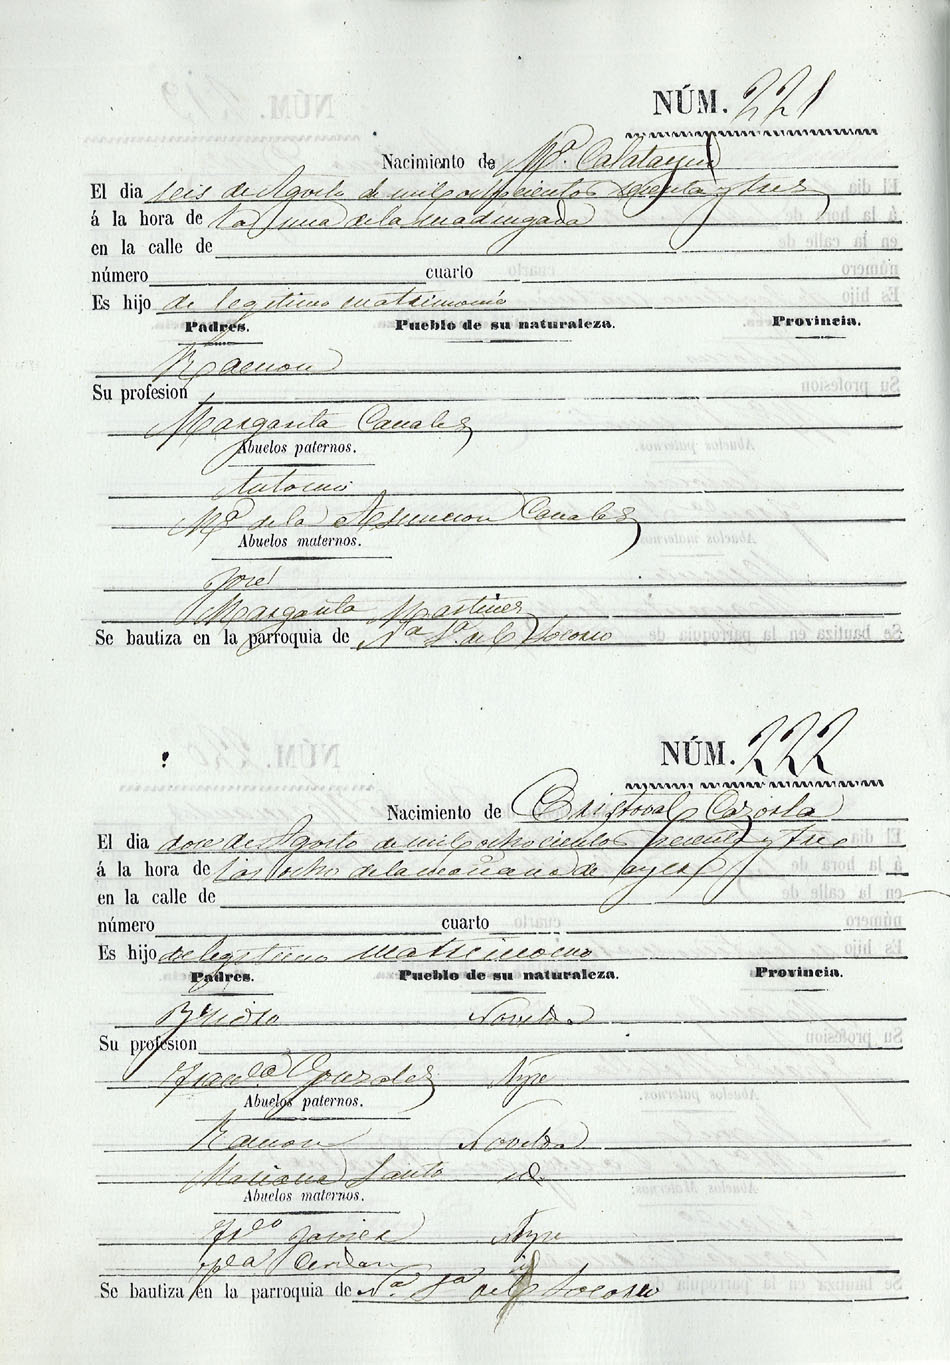 NÚM. 221
Nacimiento de Mª. Calatayud
El dia seis de Agosto de mil ochocientos setenta y tres
á la hora de la una de la madrugada
en la calle de
número cuarto
Es hijo de legitimo matrimonio
Padres. Pueblo de su naturaleza. Provincia.
Ramon
Su profesion
Margarita Canales
Abuelos paternos.
Antonio
Mª de la Asuncion Canales
Abuelos maternos.
José
Margarita Martines
Se bautiza en la parroquia de Nª Sª. del Socorro
NÚM. 222
Nacimiento de Cristoval Cazorla
El dia dose de Agosto de mil ochocientos setenta y tres
á la hora de las ocho de la mañana de ayer
en la calle de
número cuarto
Es hijo de legitimo matrimonio
Padres. Pueblo de su naturaleza. Provincia.
Ysidro Novelda
Su profesion
Franca Gonzales Aspe
Abuelos paternos.
Ramon Novelda
Mariana Santo id.
Abuelos maternos.
Fco Javier Aspe
Cerdan id
Se bautiza en la parroquia de Nª. Sª del Socorro